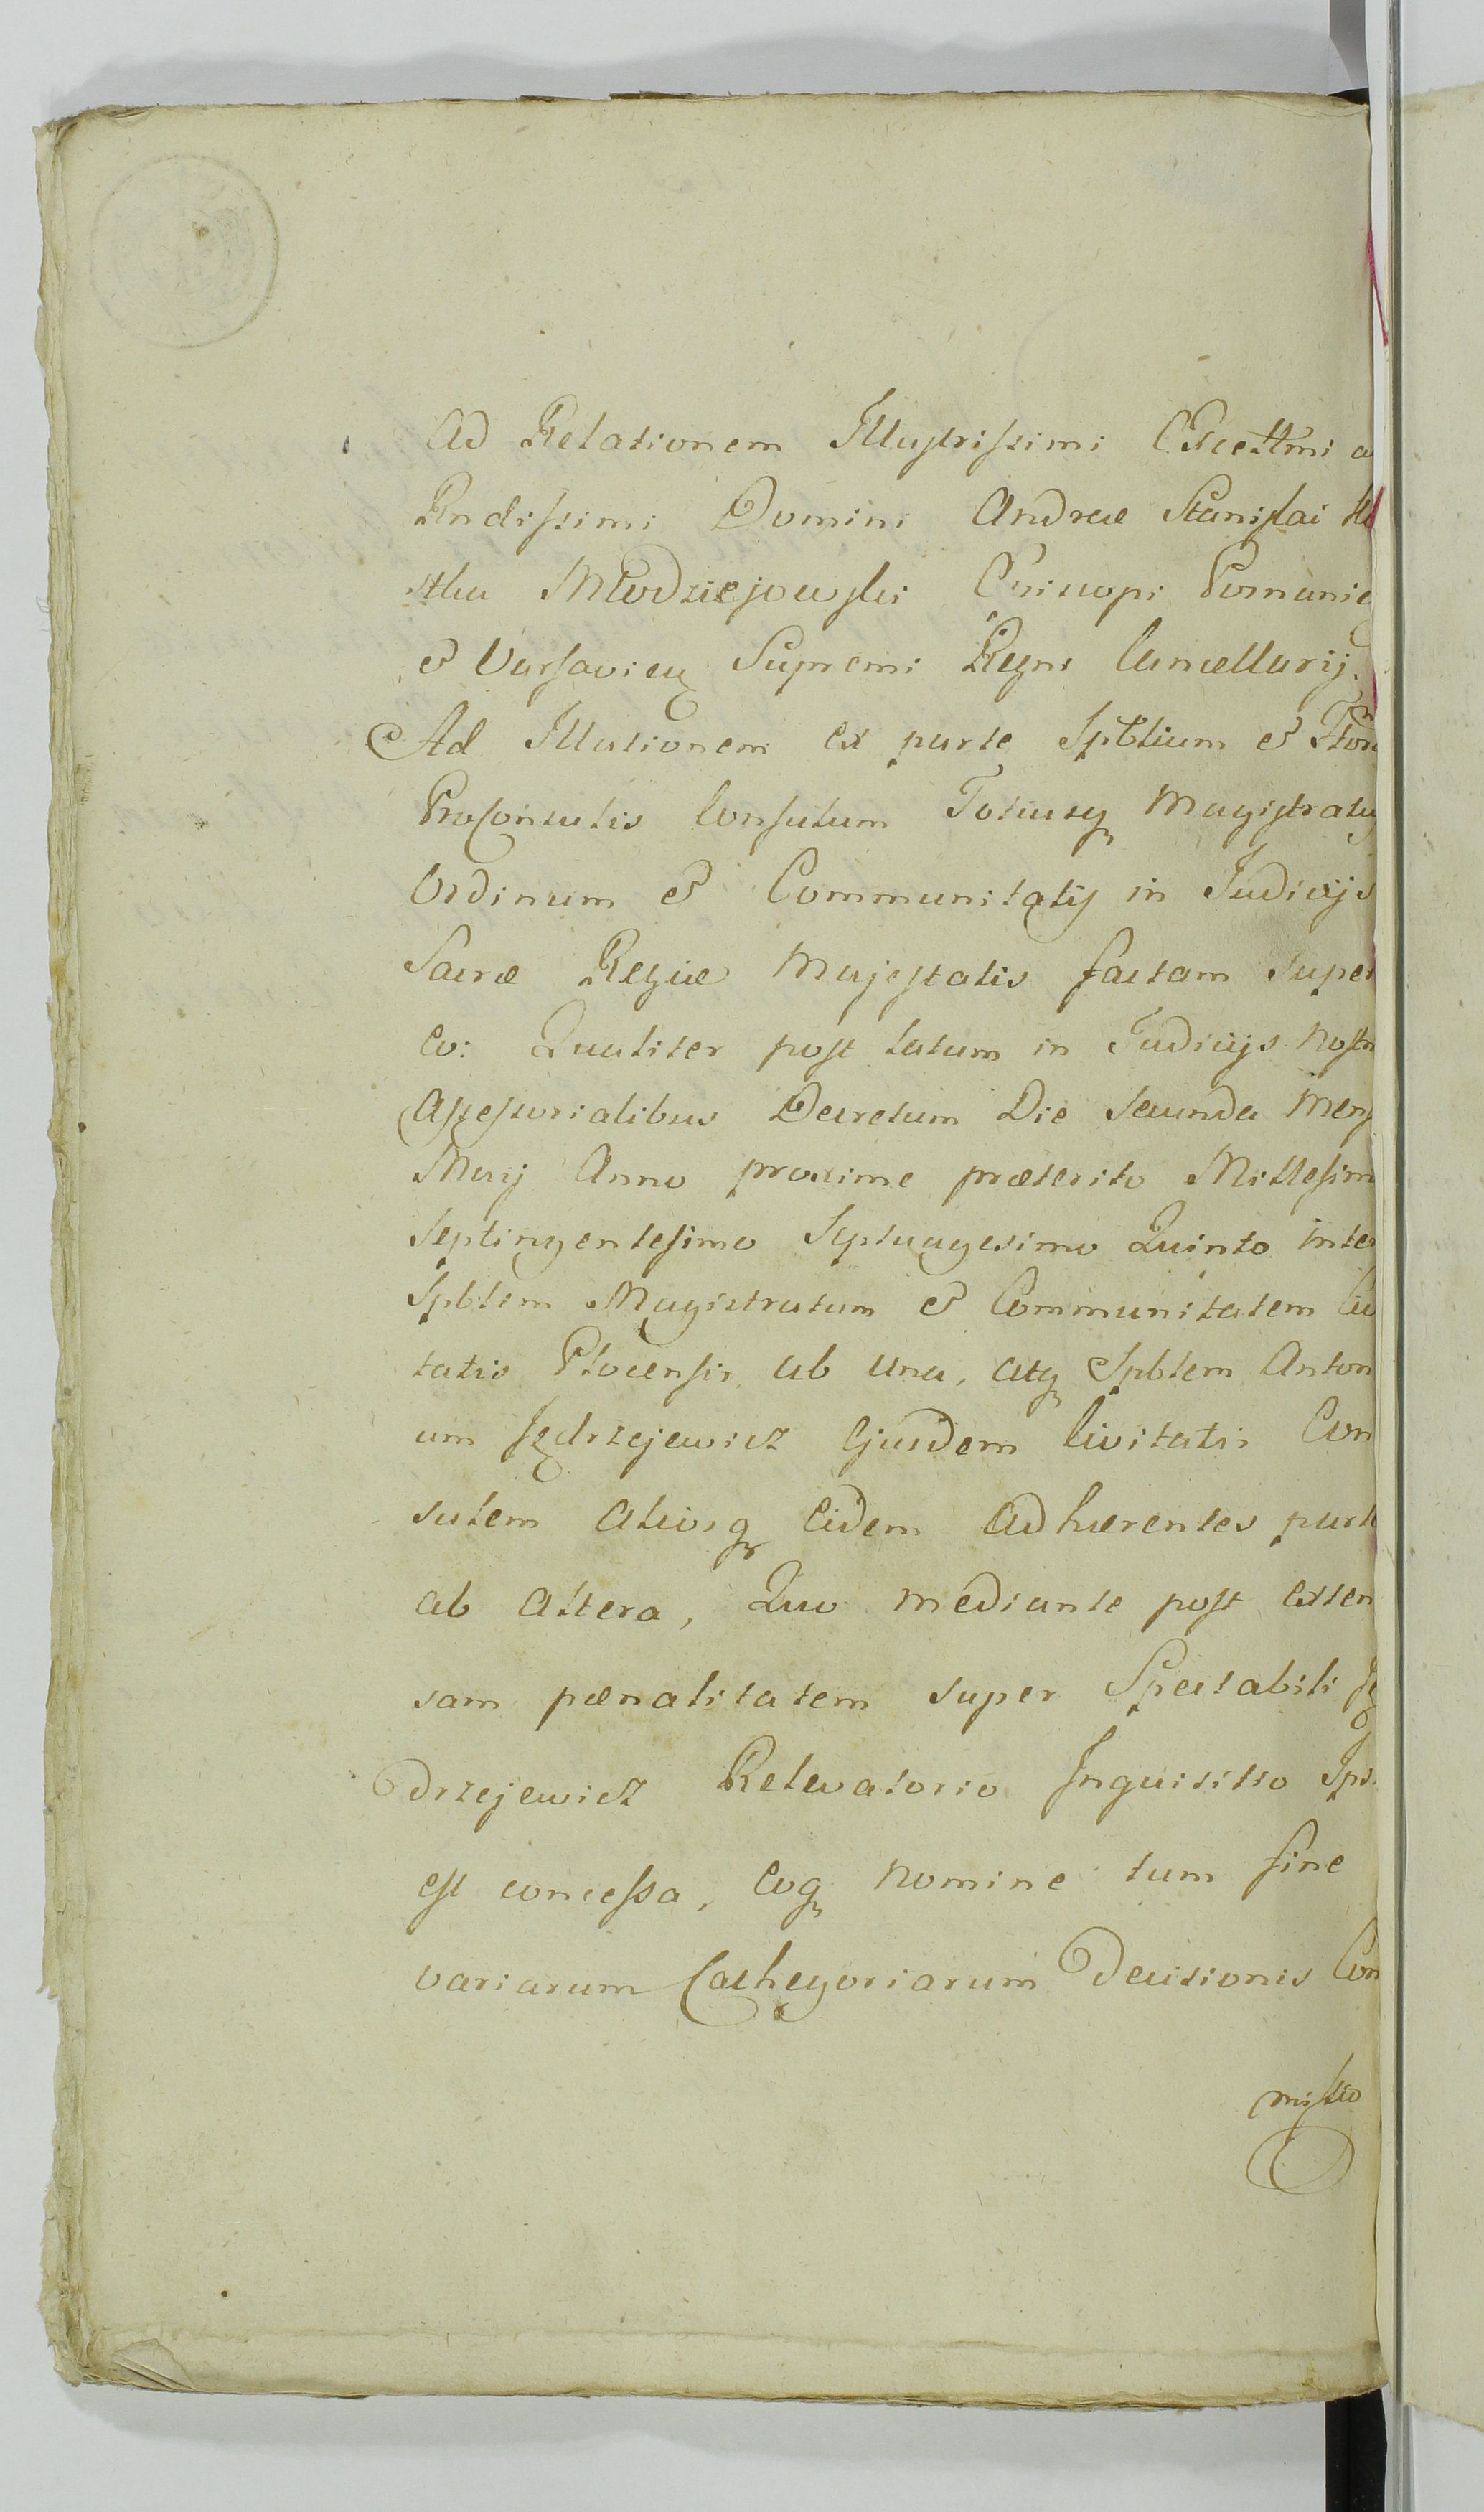 Ad Relationem Illustrissimi Excellmi a
Rndissimi Domini Andreæ Stanislai
Młodziejowski Episcopi Posnanie
et Varsavien Supremi Regni Cancellarij.
Ad Illationem ex parte Spblium et Hon
Proconsulis Consulum Totiusq Magistratus
Ordinum et Communitatis in Judicijs
Sacræ Regiæ Majestatis factam super
eo: Qualiter post latum in Judicijs Nostr
Assessorialibus Decretum Die Secunda Mens
Maij Anno proxime præterito Millesim
Septingentesimo Septuagesimo Quinto inter
Spblem Magistratum et Communitatem Civi
tatis Plocensis ab una, atq Spblem Anton
um Jędrzejewicz Ejusdem Civitatis Con
sulem Aliosq Eidem Adhærentes parte
ab Altera, Quo mediante post exten
sam pœnalitatem super Spectabili Ję
drzejewicz Relevatorio Inquisitio Ips
est concessa, Eoq Nomine tum fine
variarum Cathegoriarum Decisionis Com
missio